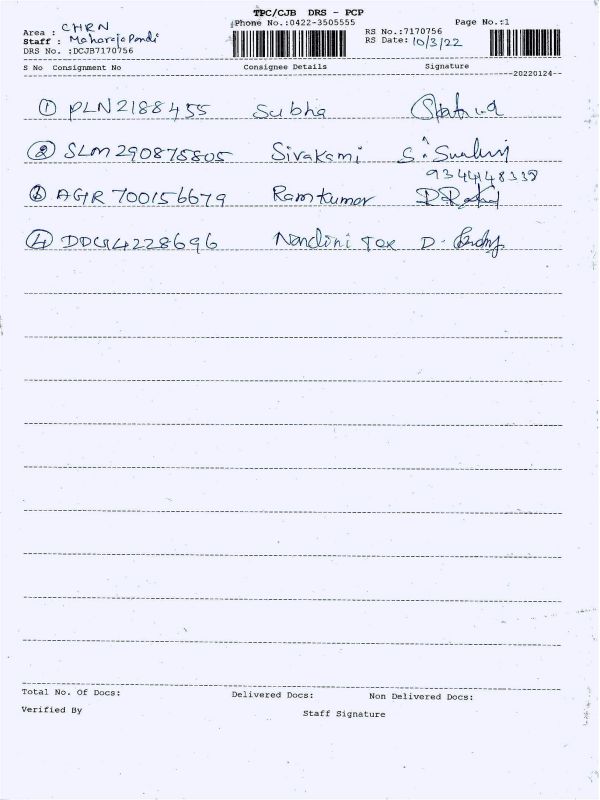 TPC/CJB DRS - PCP
Phone No.:0422-3505555 Page No.:1
Area : CHRN
Staff : Maharaja Pandi
DRS No. :DCJB7170756
RS No.:7170756
RS Date: 10/3/22
S No Consignment No Consignee Details Signature
20220124
① PLN2188455 Subha
② SLM290875805 Sivakami
9344148338
③ AGR 700156679 Ramkumar
④ DDG14228696 Nandini Tex
Total No. Of Docs: Delivered Docs: Non Delivered Docs:
Verified By Staff Signature